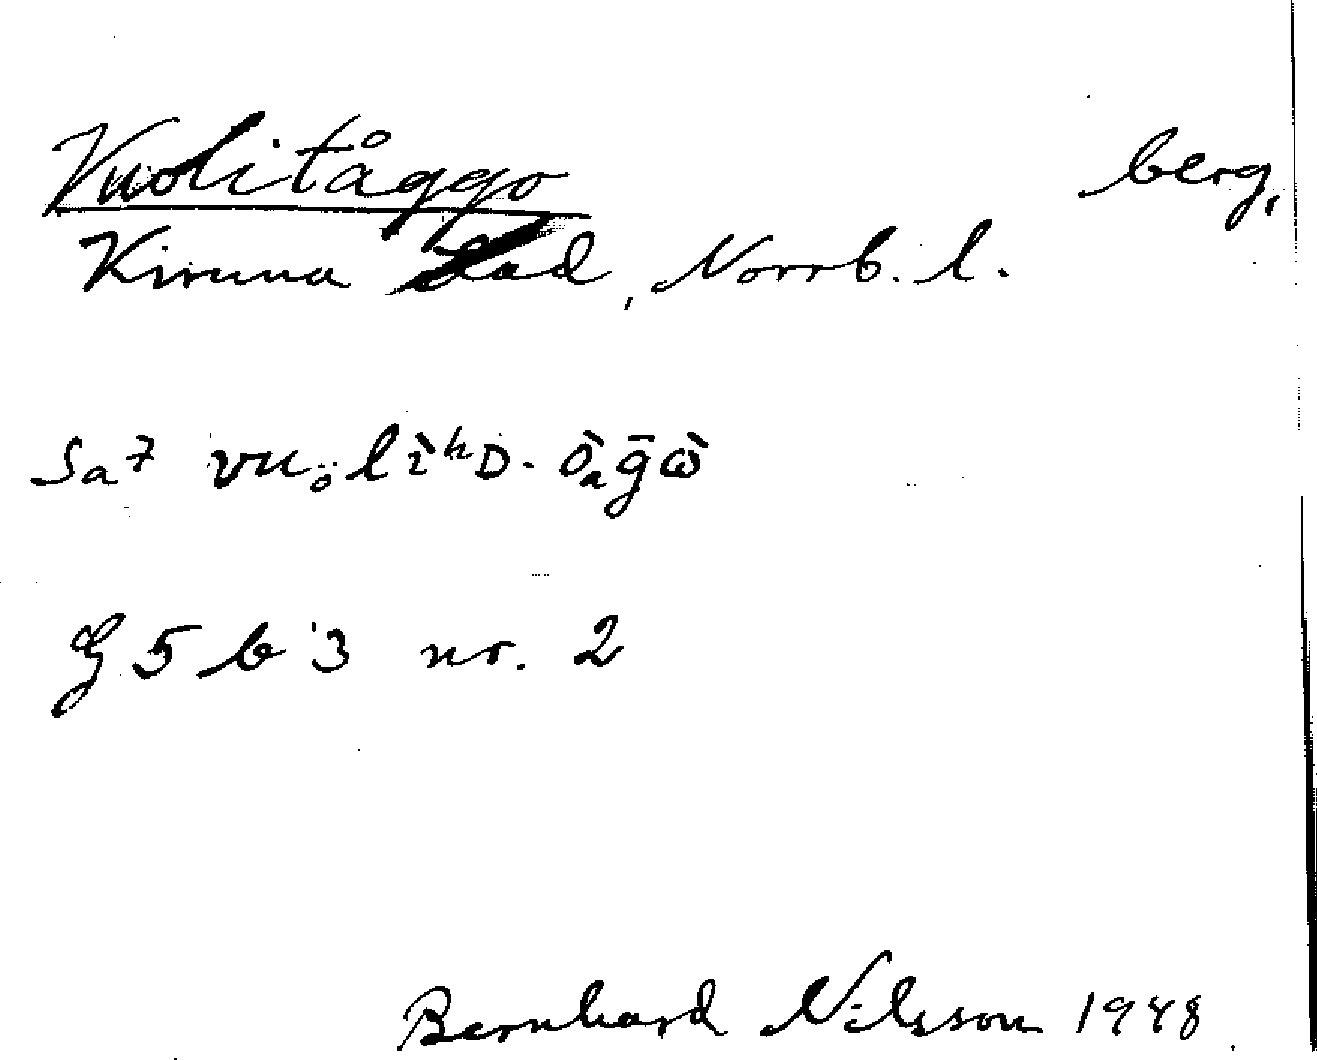 Vuolitåggo berg,
Kiruna stad, Norrb. l.
Sa7
G 5 b 3 nr. 2
Bernhard Nilsson 1948